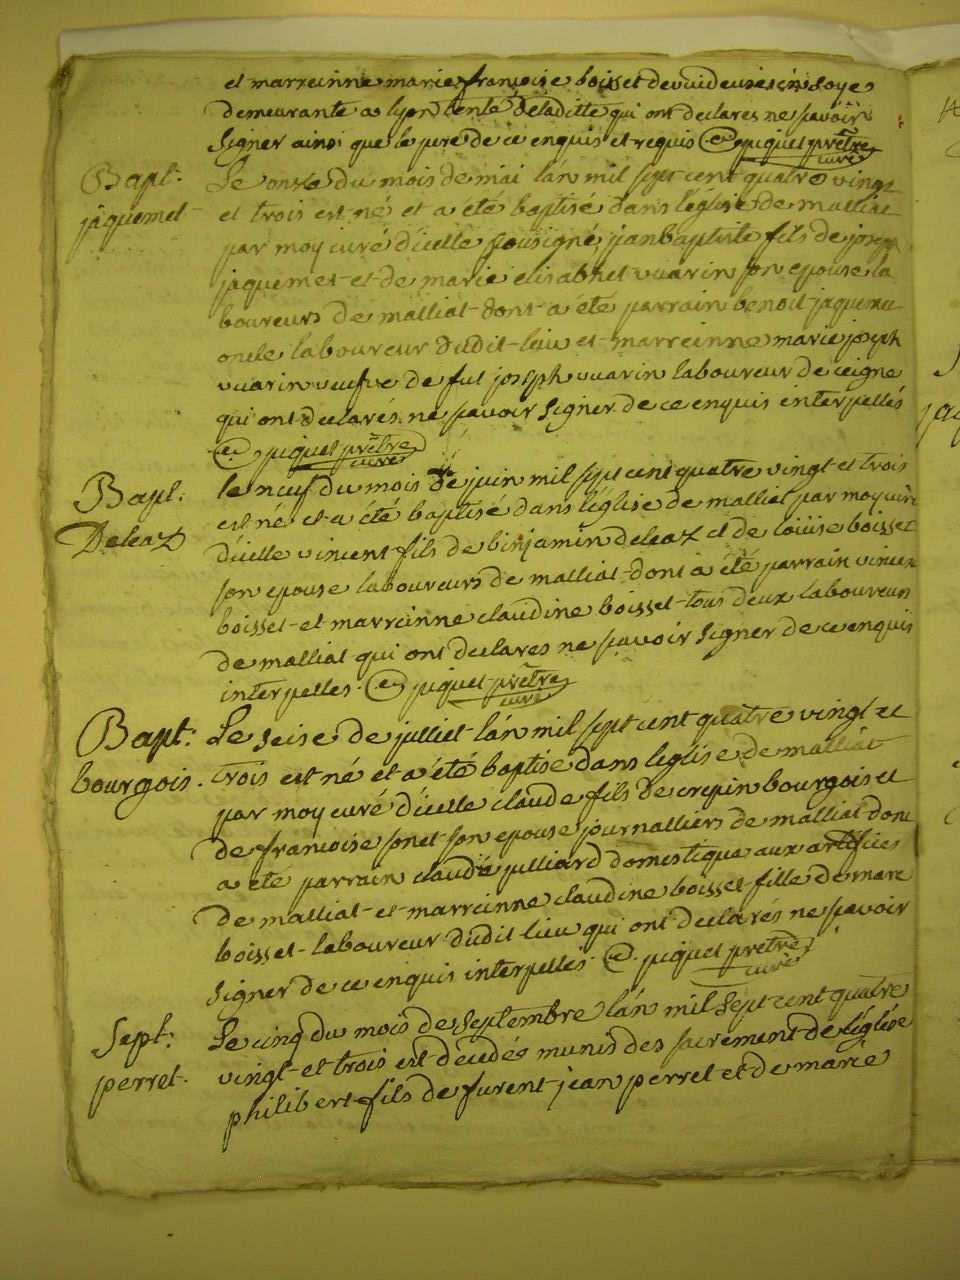 et marreinne marie françoise boisset devuideuse en soye
demeurante a lyon tente de laditte qui ont declares ne sçavoir
signer ainsi que le pere de ce enquis et requis piquet prêtre
curé
Bapt. Le onze du mois de mai l'an mil sept cent quatre vingt
jaquemet et trois est né et a été baptisé dans l'église de malliat
par moy curé d'icelle sousigné janbaptiste fils de joseph
jaquemet et de marie elisabhet vuarin son epouse la
boureurs de malliat dont a été parrain benoit jaquemet
oncle laboureur dudit lieu et marreinne marie joseph
vuarin veufve de fut joseph vuarin laboureur de ceigne
qui ont declarés ne sçavoir signer de ce enquis interpellés
piquet prêtre
curé
Bapt. le neuf du mois de juin mil sept cent quatre vingt et trois
est né et a été baptisé dans l'église de malliat par moy curé
Deleaz d'icelle vincent fils de binjamin deleaz et de louise boisset
son epouse laboureurs de malliat dont a été parrain vincent
boisset et marreinne claudine boisset tous deux laboureurs
de malliat qui ont declares ne sçavoir signer de ce enquis
interpelles piquet prêtre
curé
Bapt. Le seise de julliet l'an mil sept cent quatre vingt et
bourgois. trois est né et a été baptise dans leglise de malliat
par moy curé d'icelle claude fils de crepin bourgois et
de françoise sonet son epouse journalliers de malliat dont
a été parrain claude julliard domestique aux artifices
de malliat et marreinne claudine boisset fille de marc
boisset laboureur dudit lieu qui ont declarés ne sçavoir
signer de ce enquis interpellés piquet prêtre
curé
Sept. Le cinq du mois de septembre l'an mil sept cent quatre
perret. vingt et trois est decedés munis des sacrement de l'église
philibert fils de furent jean perret et de marie